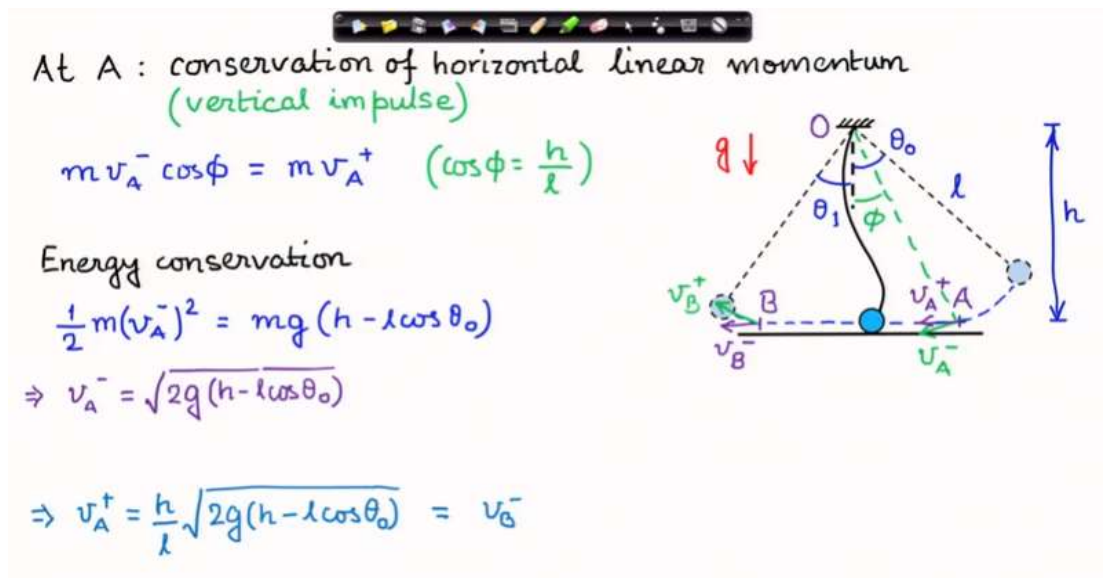 At A : conservation of horizontal linear momentum
(vertical impulse)
m v_A^- cosϕ = m v_A^+ (cosϕ = h/l)
Energy conservation
1/2 m(v_A^-)^2 = mg (h - l cos θ_0)
⇒ v_A^- = √2g(h-l cos θ_0)
⇒ v_A^+ = h/l √2g(h-l cos θ_0) = v_B^-
O
θ_0
g↓
l
θ_1
ϕ
h
v_B^+
B
v_A^+
A
v_B^-
v_A^-